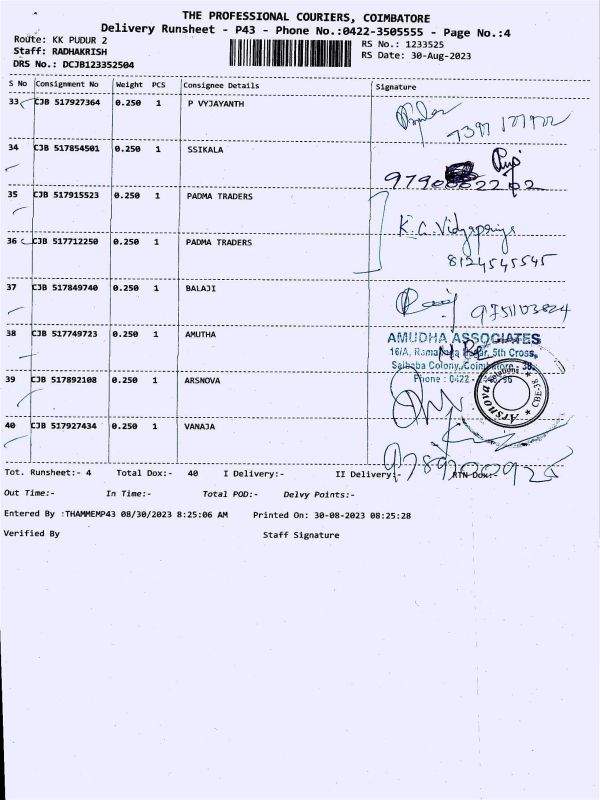 THE PROFESSIONAL COURIERS, COIMBATORE
Delivery Runsheet - P43 - Phone No.:0422-3505555 - Page No.:4
Route: KK PUDUR 2
RS No.: 1233525
Staff: RADHAKRISH
RS Date: 30-Aug-2023
DRS No.: DCJB123352504
S No Consignment No Weight PCS Consignee Details Signature
33 CJB 517927364 0.250 1 P VYJAYANTH
34 CJB 517854501 0.250 1 SSIKALA
35 CJB 517915523 0.250 1 PADMA TRADERS
K.C. Vidyapriya
36 CJB 517712250 0.250 1 PADMA TRADERS
8124545545
37 CJB 517849740 0.250 1 BALAJI
9751103824
38 CJB 517749723 0.250 1 AMUTHA
AMUDHA ASSOCIATES
16/A, 5th Cross,
Saibaba Colony,
Phone : 0422 -
39 CJB 517892108 0.250 1 ARSNOVA
Arsnova Solutions CBE-38
40 CJB 517927434 0.250 1 VANAJA
Tot. Runsheet:- 4 Total Dox:- 40 I Delivery:- II Delivery:- RTN Dox:-
Out Time:- In Time:- Total POD:- Delvy Points:-
Entered By :THAMMEMP43 08/30/2023 8:25:06 AM Printed On: 30-08-2023 08:25:28
Verified By Staff Signature